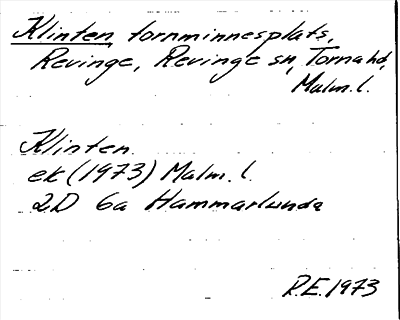 Klinten, fornminnesplats,
Revinge, Revinge sn, Torna hd,
Malm. l.
Klinten
ek (1973) Malm. l.
2D 6a Hammarlunda
R.E. 1973